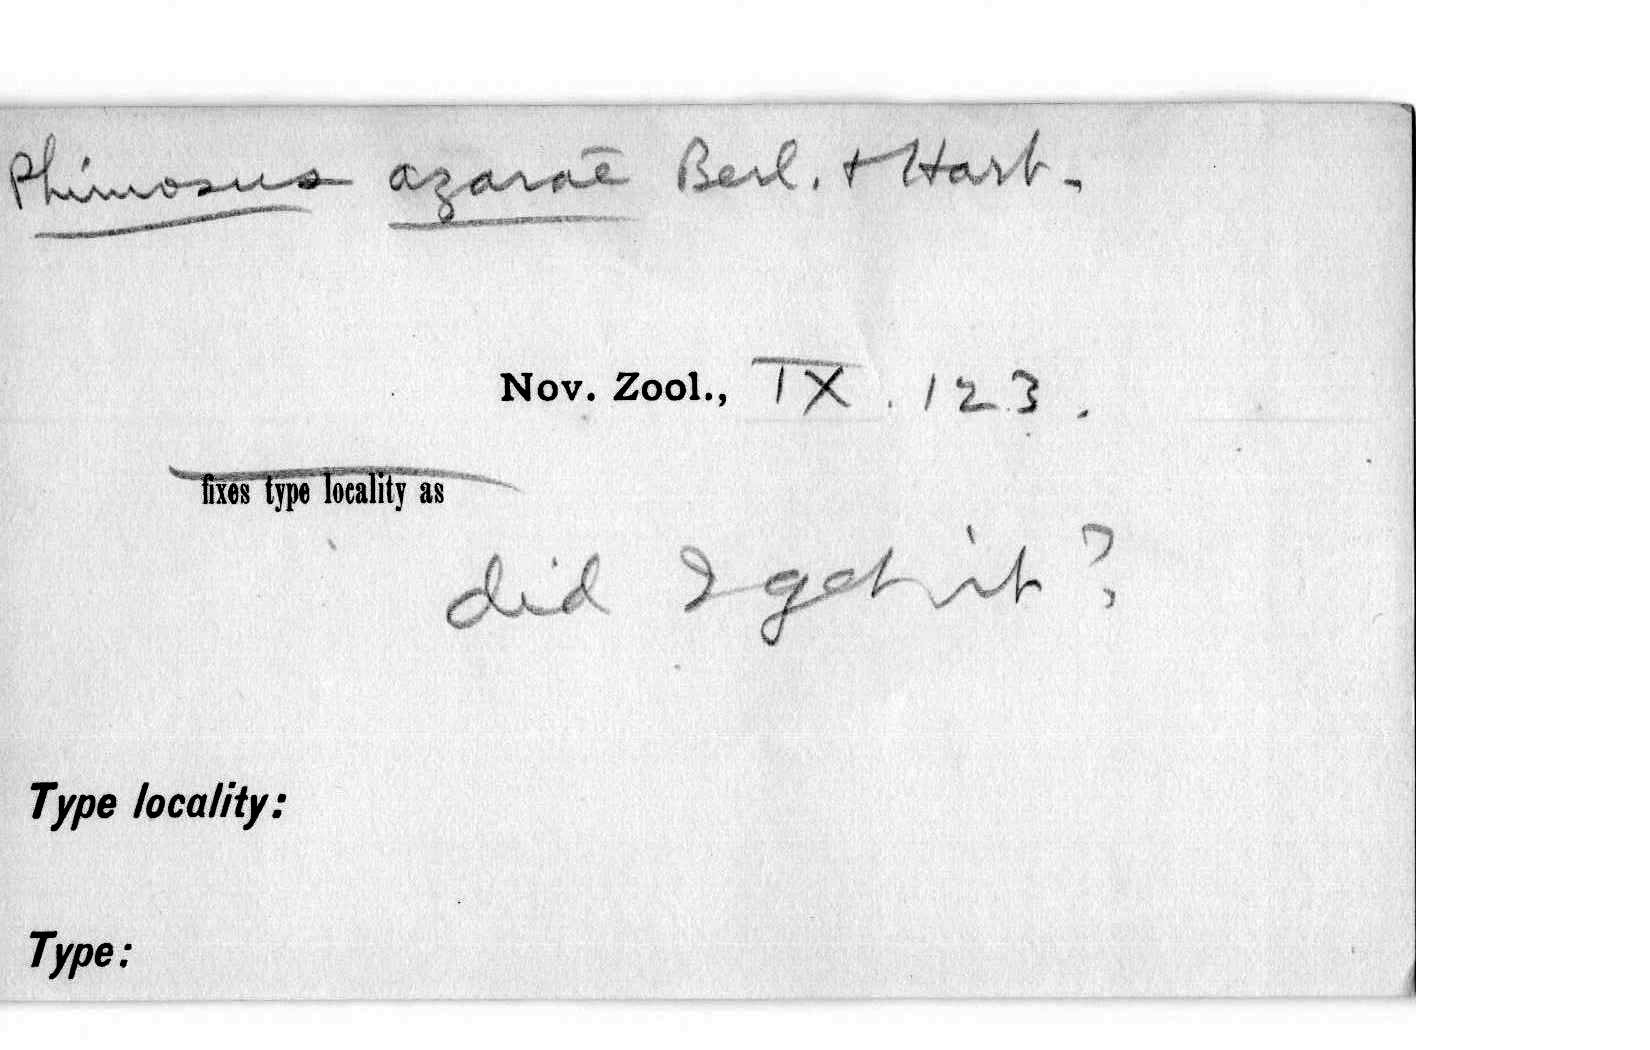 Phimosus azarae Berl. + Hart.
Nov. Zool., IX. 123.
fixes type locality as
did I get it?
Type locality:
Type: